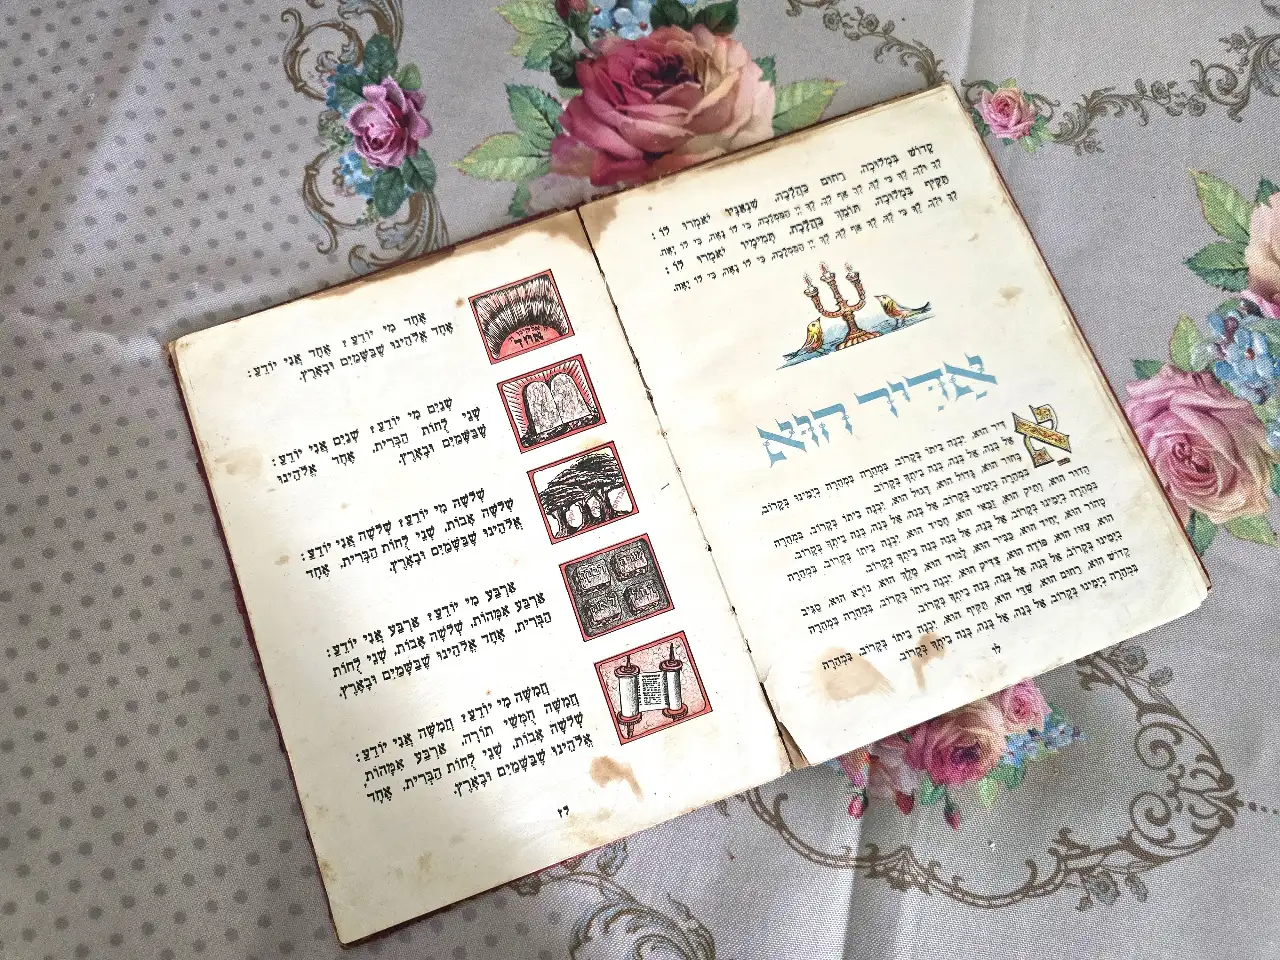 קָדוֹשׁ בִּמְלוּכָה, רַחוּם כַּהֲלָכָה, שִׁנְאַנָּיו יֹאמְרוּ לוֹ:
לְךָ וּלְךָ, לְךָ כִּי לְךָ, לְךָ אַף לְךָ, לְךָ יְיָ הַמַּמְלָכָה, כִּי לוֹ נָאֶה, כִּי לוֹ יָאֶה.
תַּקִּיף בִּמְלוּכָה, תּוֹמֵךְ כַּהֲלָכָה, תְּמִימָיו יֹאמְרוּ לוֹ:
לְךָ וּלְךָ, לְךָ כִּי לְךָ, לְךָ אַף לְךָ, לְךָ יְיָ הַמַּמְלָכָה, כִּי לוֹ נָאֶה, כִּי לוֹ יָאֶה.
אַדִּיר הוּא
אַדִּיר הוּא, יִבְנֶה בֵיתוֹ בְּקָרוֹב, בִּמְהֵרָה בִּמְהֵרָה בְּיָמֵינוּ בְּקָרוֹב,
אֵל בְּנֵה, אֵל בְּנֵה, בְּנֵה בֵיתְךָ בְּקָרוֹב.
בָּחוּר הוּא, גָּדוֹל הוּא, דָּגוּל הוּא, יִבְנֶה בֵיתוֹ בְּקָרוֹב, בִּמְהֵרָה
בִּמְהֵרָה בְּיָמֵינוּ בְּקָרוֹב, אֵל בְּנֵה, אֵל בְּנֵה, בְּנֵה בֵיתְךָ בְּקָרוֹב.
הָדוּר הוּא, וָתִיק הוּא, זַכַּאי הוּא, חָסִיד הוּא, יִבְנֶה בֵיתוֹ בְּקָרוֹב, בִּמְהֵרָה
בִּמְהֵרָה בְּיָמֵינוּ בְּקָרוֹב, אֵל בְּנֵה, אֵל בְּנֵה, בְּנֵה בֵיתְךָ בְּקָרוֹב.
טָהוֹר הוּא, יָחִיד הוּא, כַּבִּיר הוּא, לָמוּד הוּא, מֶלֶךְ הוּא, נוֹרָא הוּא, סַגִּיב
הוּא, עִזּוּז הוּא, פּוֹדֶה הוּא, צַדִּיק הוּא, יִבְנֶה בֵיתוֹ בְּקָרוֹב, בִּמְהֵרָה בִּמְהֵרָה
בְּיָמֵינוּ בְּקָרוֹב, אֵל בְּנֵה, אֵל בְּנֵה, בְּנֵה בֵיתְךָ בְּקָרוֹב.
קָדוֹשׁ הוּא, רַחוּם הוּא, שַׁדַּי הוּא, תַּקִּיף הוּא, יִבְנֶה בֵיתוֹ בְּקָרוֹב, בִּמְהֵרָה
בִּמְהֵרָה בְּיָמֵינוּ בְּקָרוֹב, אֵל בְּנֵה, אֵל בְּנֵה, בְּנֵה בֵיתְךָ בְּקָרוֹב.
לו
אֶחָד מִי יוֹדֵעַ? אֶחָד אֲנִי יוֹדֵעַ:
אֶחָד אֱלֹהֵינוּ שֶׁבַּשָּׁמַיִם וּבָאָרֶץ.
אלהינו
אחד
שְׁנַיִם מִי יוֹדֵעַ? שְׁנַיִם אֲנִי יוֹדֵעַ:
שְׁנֵי לֻחוֹת הַבְּרִית, אֶחָד אֱלֹהֵינוּ
שֶׁבַּשָּׁמַיִם וּבָאָרֶץ.
שְׁלֹשָׁה מִי יוֹדֵעַ? שְׁלֹשָׁה אֲנִי יוֹדֵעַ:
שְׁלֹשָׁה אָבוֹת, שְׁנֵי לֻחוֹת הַבְּרִית, אֶחָד
אֱלֹהֵינוּ שֶׁבַּשָּׁמַיִם וּבָאָרֶץ.
אַרְבַּע מִי יוֹדֵעַ? אַרְבַּע אֲנִי יוֹדֵעַ:
אַרְבַּע אִמָּהוֹת, שְׁלֹשָׁה אָבוֹת, שְׁנֵי לֻחוֹת
הַבְּרִית, אֶחָד אֱלֹהֵינוּ שֶׁבַּשָּׁמַיִם וּבָאָרֶץ.
חֲמִשָּׁה מִי יוֹדֵעַ? חֲמִשָּׁה אֲנִי יוֹדֵעַ:
חֲמִשָּׁה חֻמְשֵׁי תוֹרָה, אַרְבַּע אִמָּהוֹת,
שְׁלֹשָׁה אָבוֹת, שְׁנֵי לֻחוֹת הַבְּרִית, אֶחָד
אֱלֹהֵינוּ שֶׁבַּשָּׁמַיִם וּבָאָרֶץ.
לז